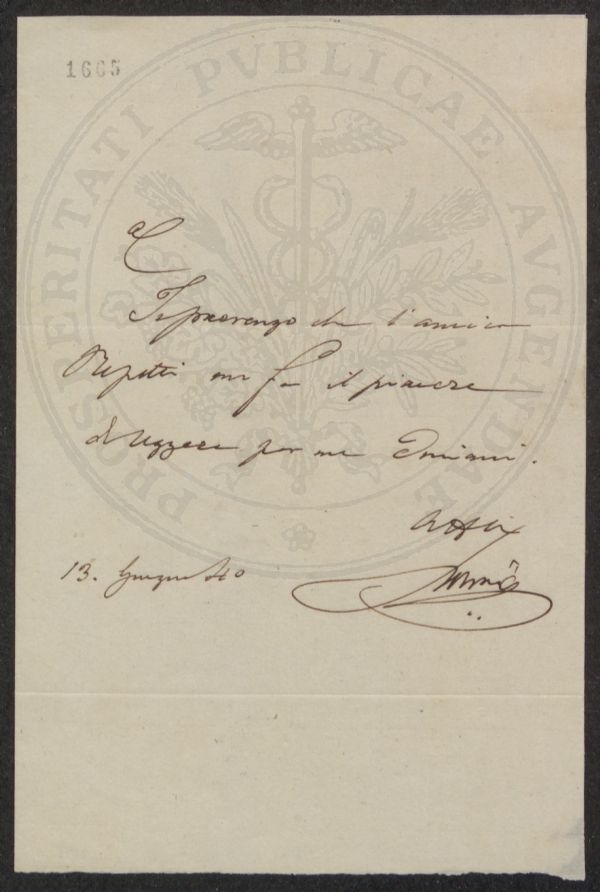 1665
PROSPERITATI PVBLICAE AVGENDAE
Ti prevengo che l'amico
Repetti mi fa il piacere
di leggere per me Domani.
13. Giugno 40